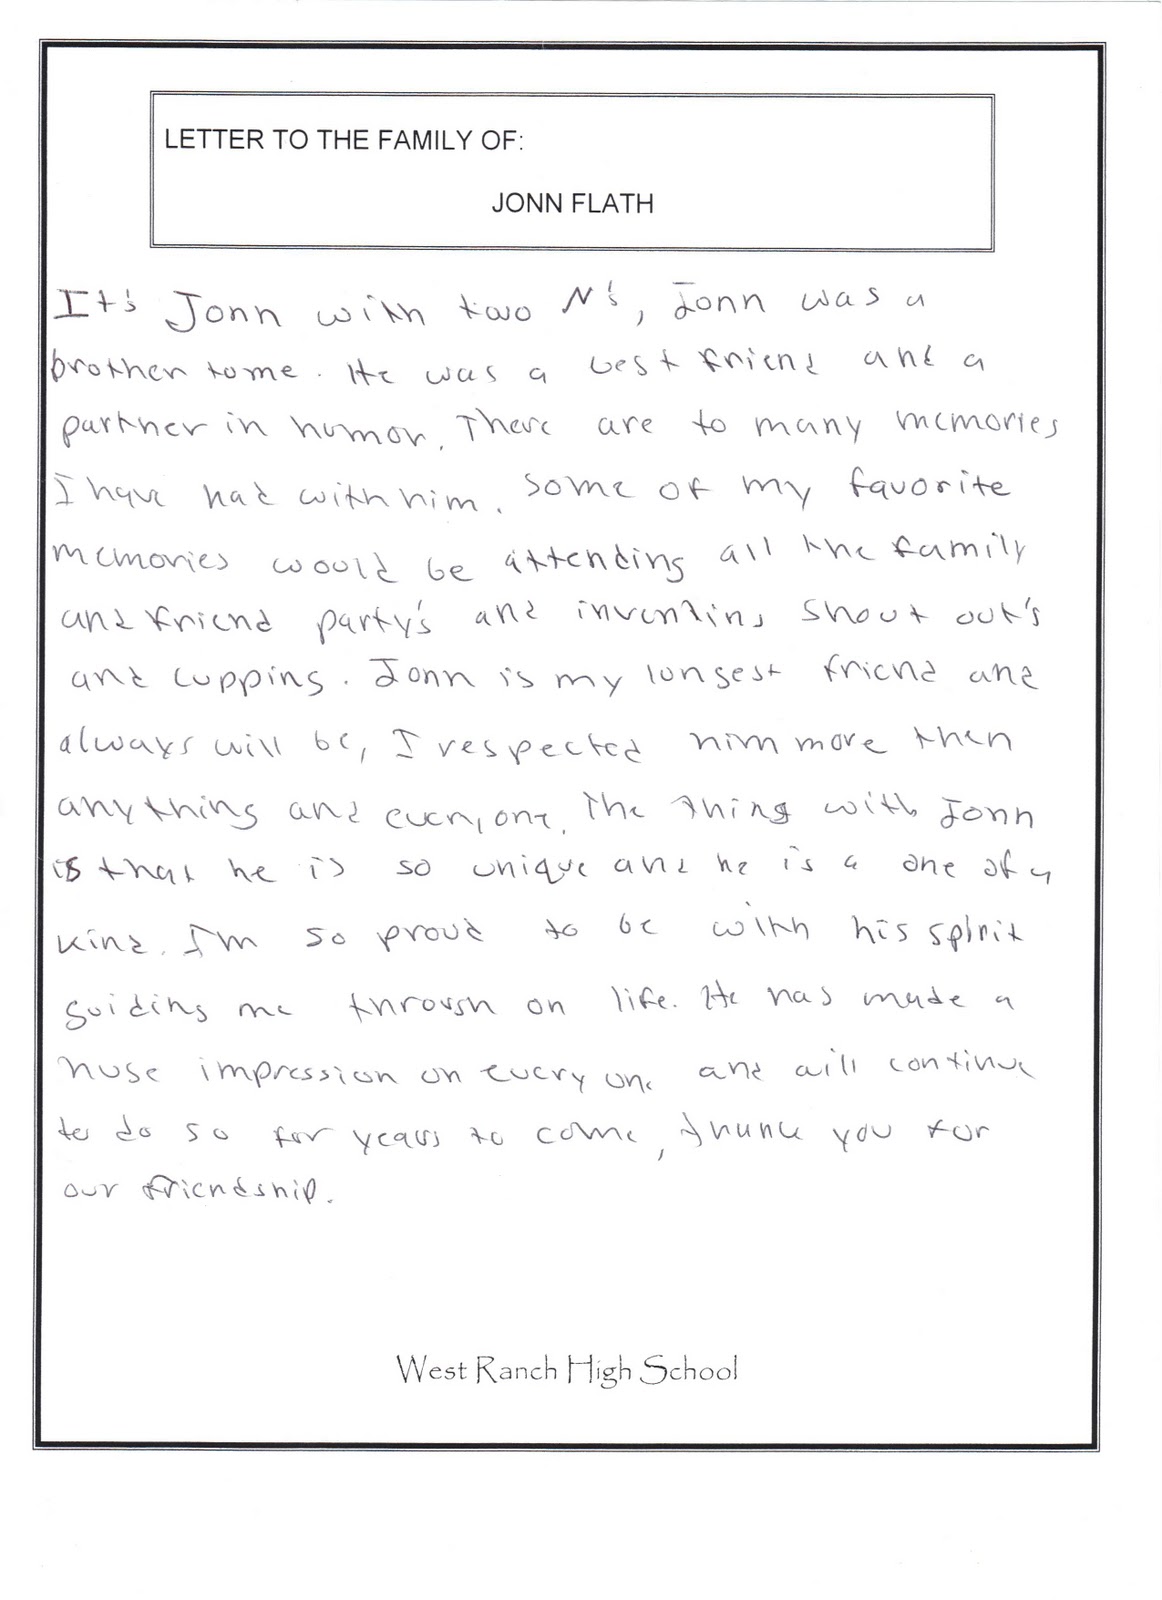 LETTER TO THE FAMILY OF:
JONN FLATH
It's Jonn with two N's, Jonn was a
brother to me. He was a best friend and a
partner in humor. There are to many memories
I have had with him. Some of my favorite
memories would be attending all the family
and friend party's and inventing shout out's
and cupping. Jonn is my longest friend and
always will be, I respected him more then
anything and everyone. The thing with Jonn
is that he is so unique and he is a one of a
kind. I'm so proud to be with his spirit
guiding me through on life. He has made a
huge impression on every one and will continue
to do so for years to come, thank you for
our friendship.
West Ranch High School